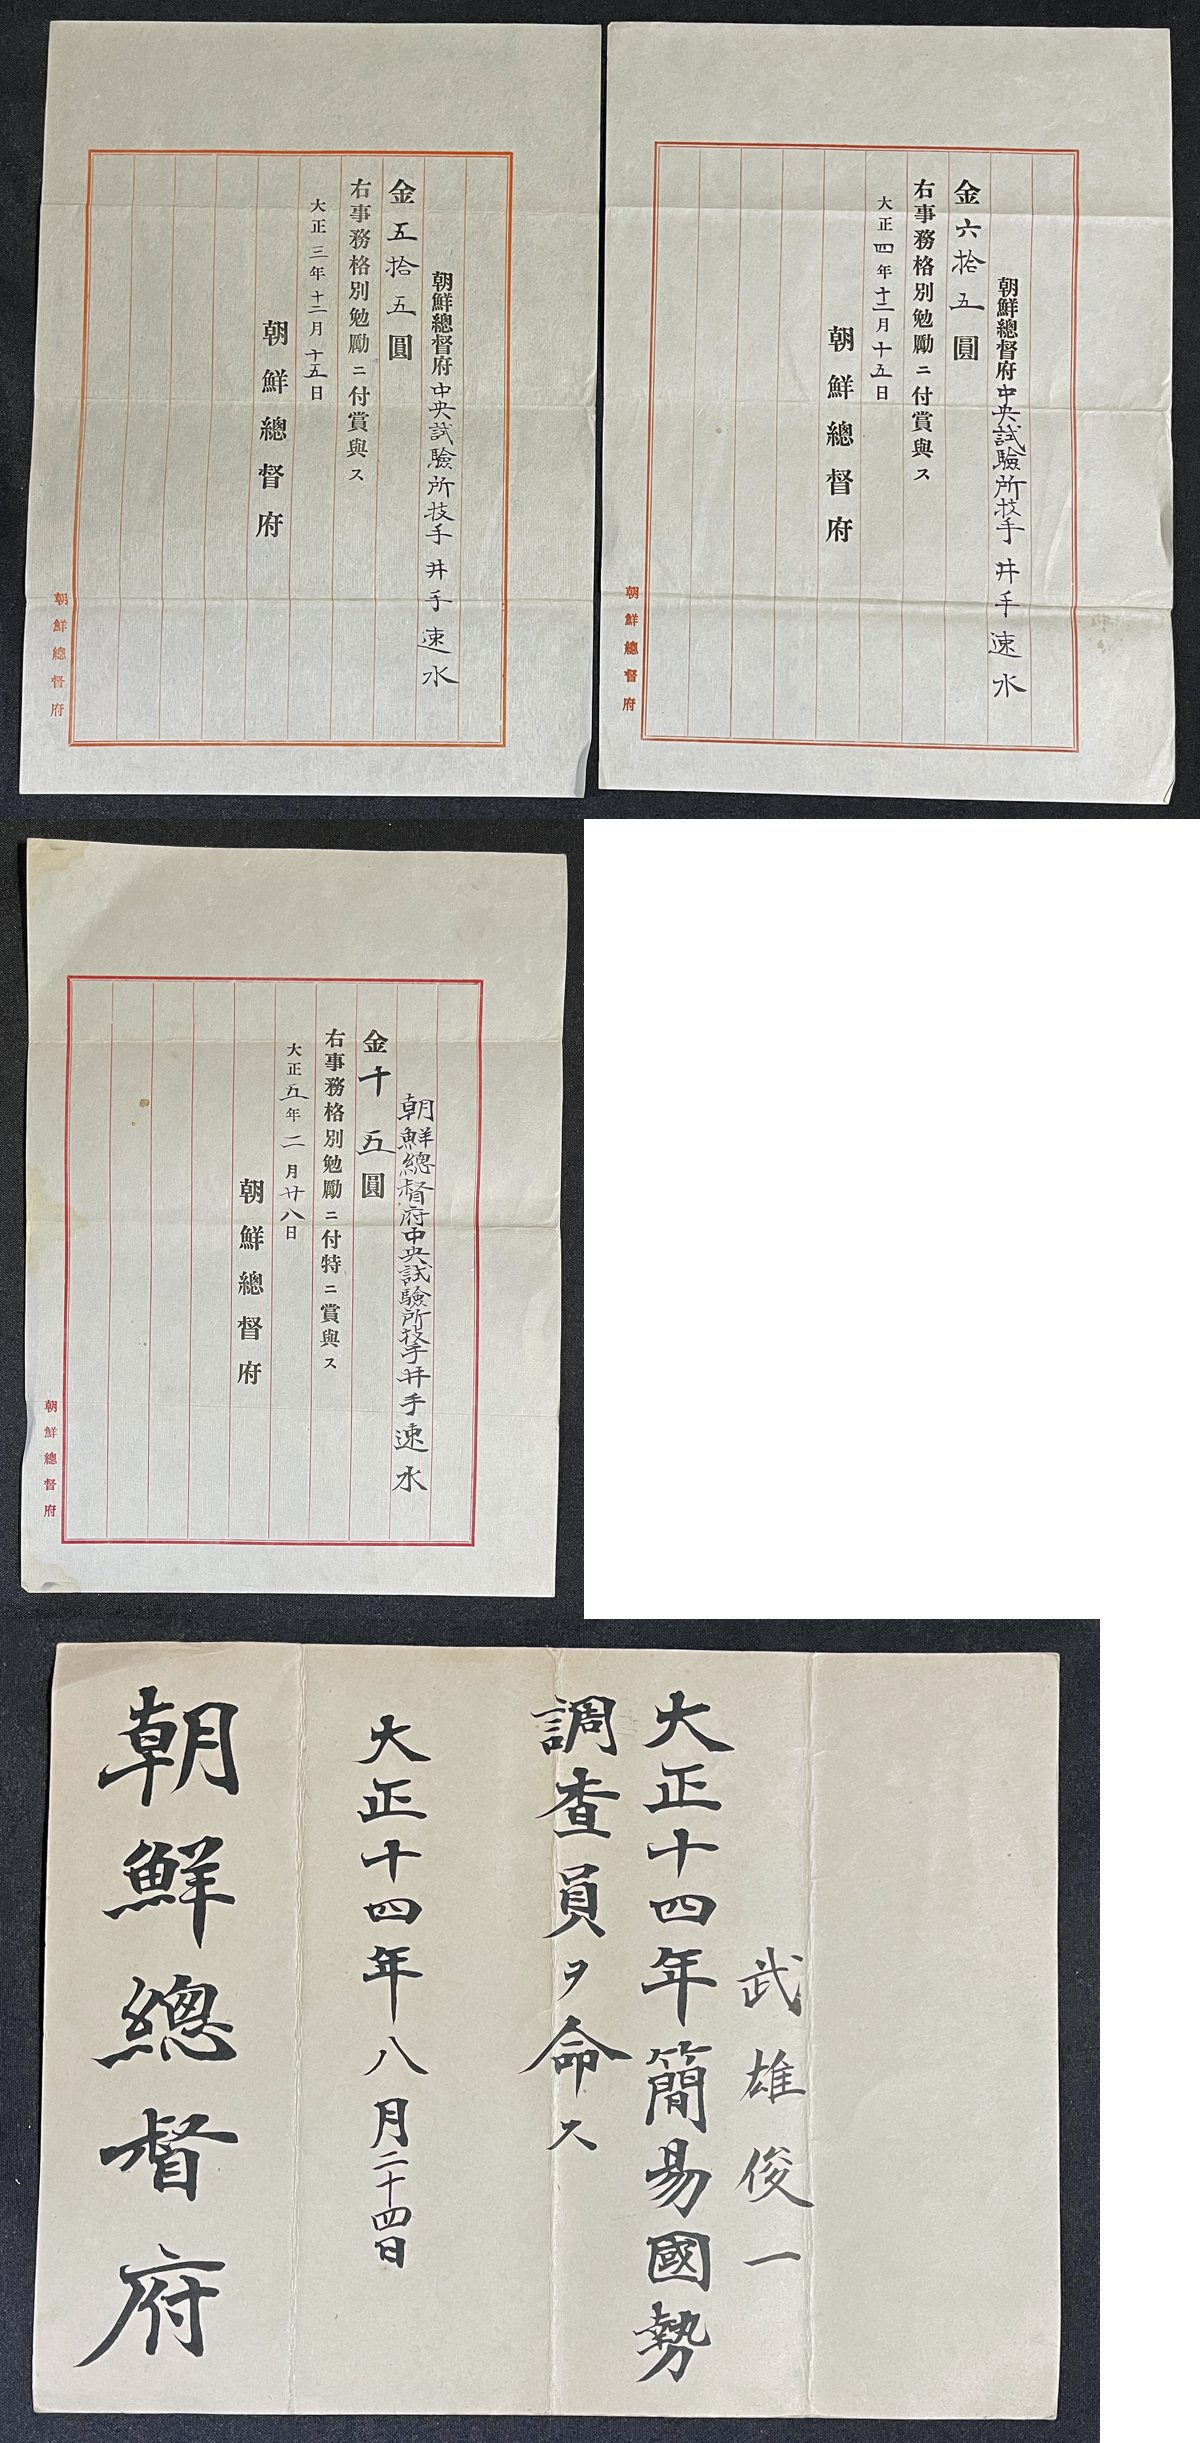 朝鮮總督府中央試驗所技手井手速水
金五拾五圓
右事務格別勉勵ニ付賞與ス
大正三年十二月十五日
朝鮮總督府
朝鮮總督府
朝鮮總督府中央試驗所技手井手速水
金六拾五圓
右事務格別勉勵ニ付賞與ス
大正四年十二月十五日
朝鮮總督府
朝鮮總督府
朝鮮總督府中央試驗所技手井手速水
金十五圓
右事務格別勉勵ニ付特ニ賞與ス
大正五年二月廿八日
朝鮮總督府
朝鮮總督府
武雄俊一
大正十四年簡易國勢
調査員ヲ命ス
大正十四年八月二十四日
朝鮮總督府